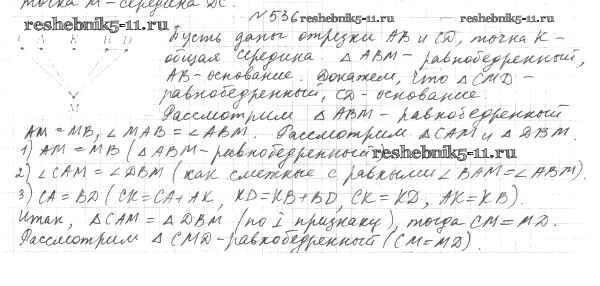 точка М - середина DC.
N 536 reshebnik5-11.ru reshebnik5-11.ru
reshebnik5-11.ru
Пусть даны отрезки АВ и CD, точка К -
общая середина. △ АВМ - равнобедренный,
АВ - основание. Докажем, что △ СМD -
равнобедренный, CD - основание.
Рассмотрим △ АВМ - равнобедренный
АМ = МВ, ∠ МАВ = ∠ АВМ. Рассмотрим △ САМ и △ DBM.
1) АМ = МВ (△ АВМ - равнобедренный) reshebnik5-11.ru
2) ∠ САМ = ∠ DBM (как смежные с равными ∠ ВАМ = ∠ АВМ).
3) СА = BD (СК = СА + АК, KD = КВ + BD, СК = KD, АК = КВ).
Итак, △ САМ = △ DBM (по I признаку), тогда СМ = MD.
Рассмотрим △ CMD - равнобедренный (СМ = MD).